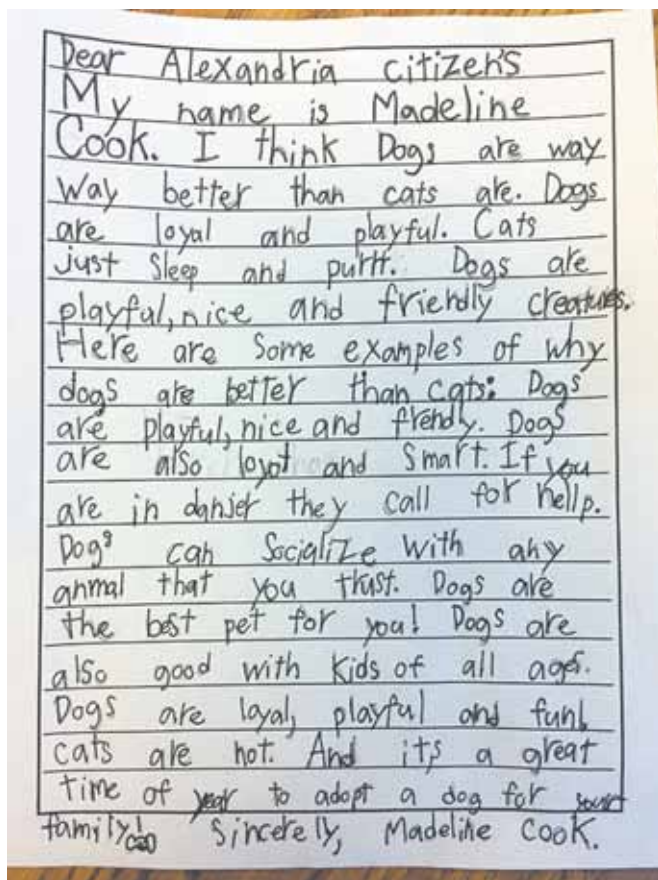 Dear Alexandria citizens
My name is Madeline
Cook. I think Dogs are way
way better than cats are. Dogs
are loyal and playful. Cats
just sleep and purrr. Dogs are
playful, nice and friendly creatures.
Here are some examples of why
dogs are better than cats: Dogs
are playful, nice and frendly. Dogs
are also loyol and smart. If you
are in danjer they call for hellp.
Dogs can socialize with any
anmal that you trust. Dogs are
the best pet for you! Dogs are
also good with kids of all ages.
Dogs are loyal, playful and fun!
cats are not. And it's a great
time of year to adopt a dog for your
family! Sincerely, Madeline Cook.